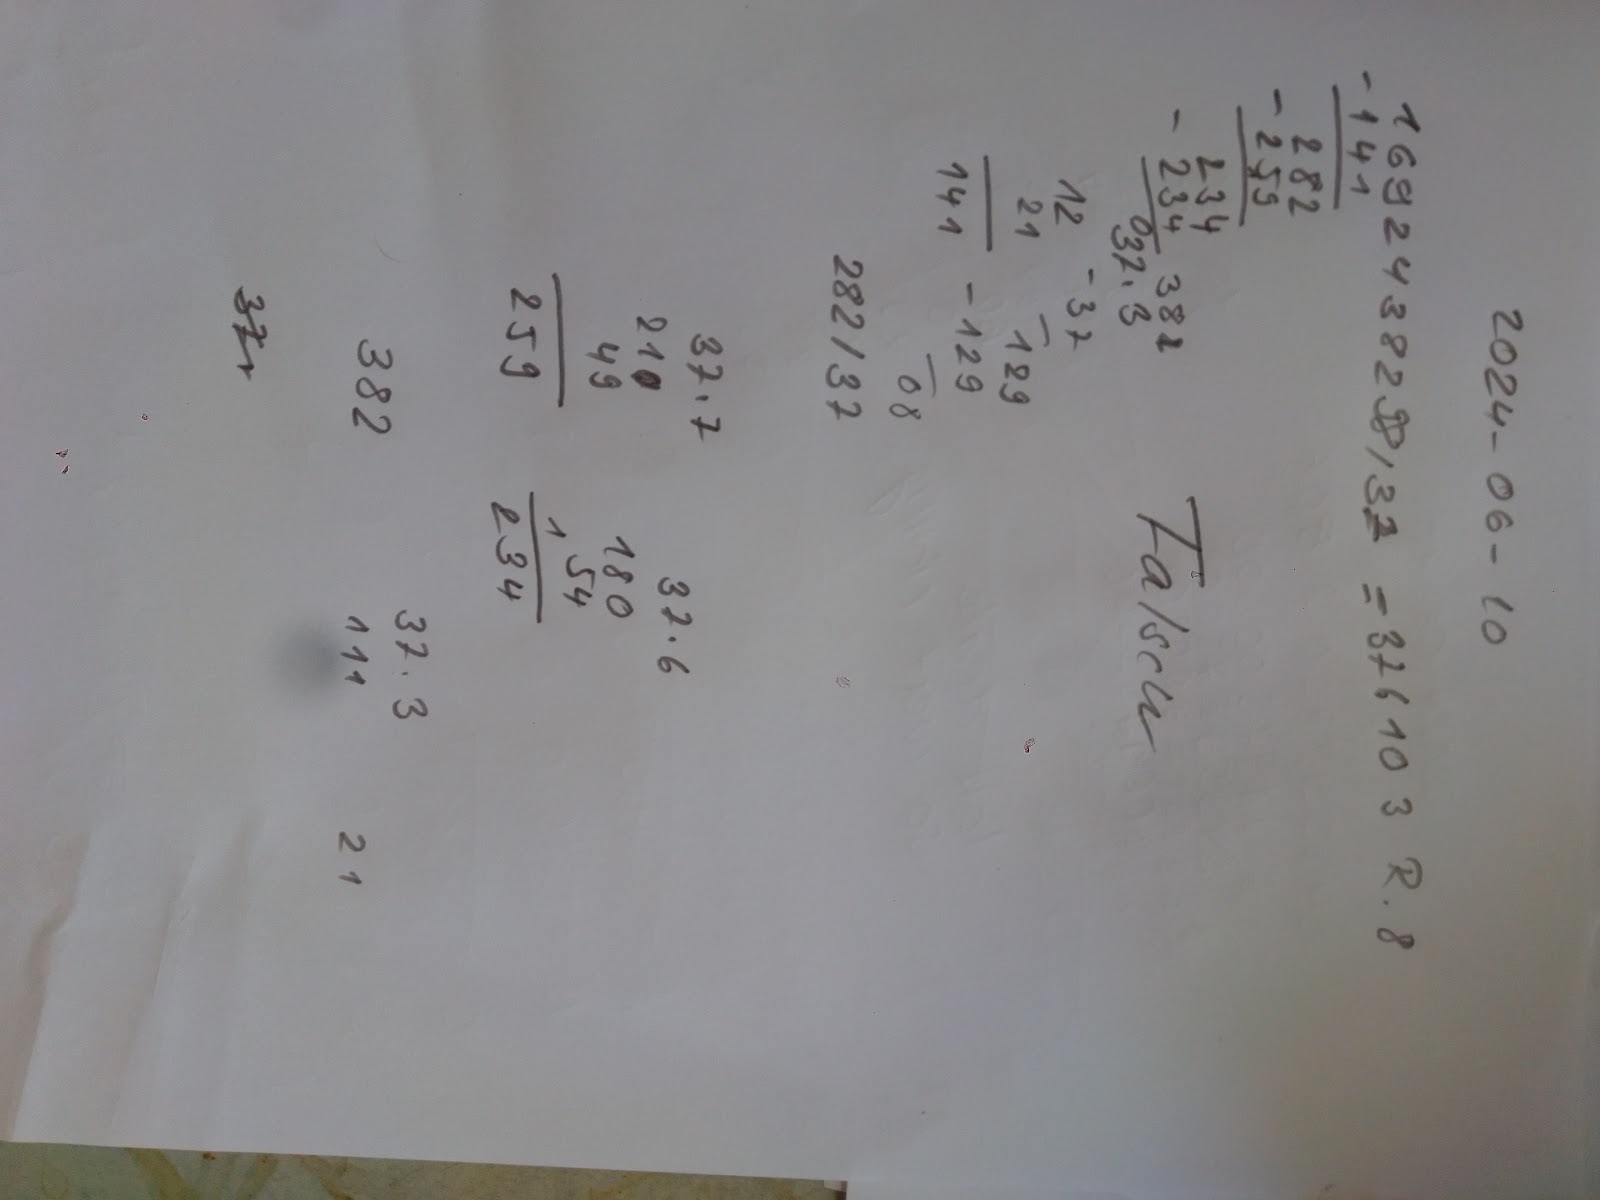 2024-06-10
1692438298/37 = 376103 R. 8
-141
282
-259
234
-234
0382
37.3
-37
129
-129
08
12
21
141
Falsch
282/37
37.7
210
49
259
37.6
180
54
1
234
382
37.3
111
21